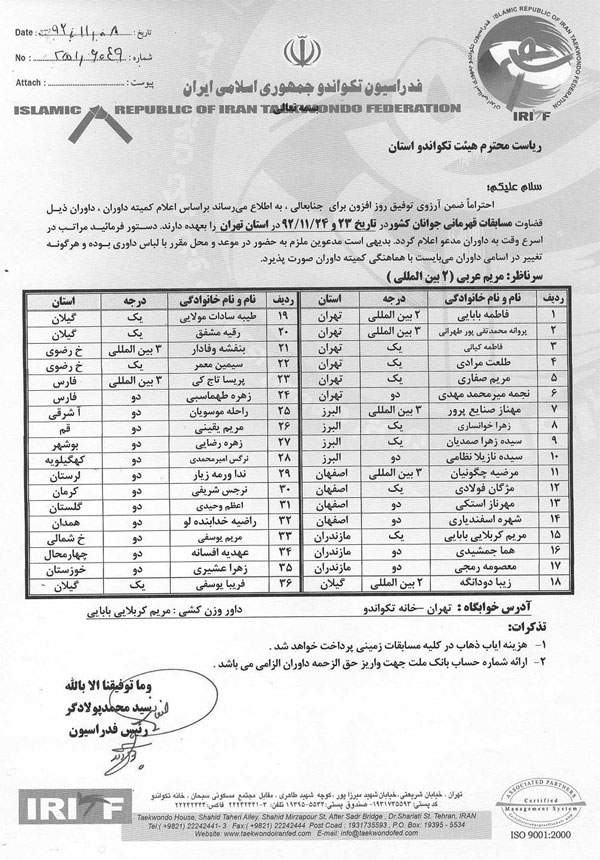 ISLAMIC REPUBLIC OF IRAN TAEKWONDO FEDERATION
IRITF
Date : تاریخ : ۹۲/۱۱/۰۸
No : شماره :
Attach : پیوست :
فدراسیون تکواندو جمهوری اسلامی ایران
ISLAMIC REPUBLIC OF IRAN TAEKWONDO FEDERATION
بسمه تعالی
ریاست محترم هیئت تکواندو استان
سلام علیکم؛
احتراماً ضمن آرزوی توفیق روز افزون برای جنابعالی ، به اطلاع می‌رساند براساس اعلام کمیته داوران ، داوران ذیل
قضاوت مسابقات قهرمانی جوانان کشور در تاریخ ۲۳ و ۹۲/۱۱/۲۴ در استان تهران را بعهده دارند. دستور فرمائید مراتب در
اسرع وقت به داوران مدعو اعلام گردد. بدیهی است مدعوین ملزم به حضور در موعد و محل مقرر با لباس داوری بوده و هرگونه
تغییر در اسامی داوران می‌بایست با هماهنگی کمیته داوران صورت پذیرد.
سرناظر: مریم عربی (۲ بین المللی )
ردیف نام و نام خانوادگی درجه استان ردیف نام و نام خانوادگی درجه استان
۱ فاطمه بابایی ۲ بین المللی تهران ۱۹ طیبه سادات مولایی یک گیلان
۲ پروانه محمدتقی پور طهرانی ۳ بین المللی تهران ۲۰ رقیه مشفق یک گیلان
۳ فاطمه کیانی یک تهران ۲۱ بنفشه وفادار ۳ بین المللی خ رضوی
۴ طلعت مرادی یک تهران ۲۲ سیمین معمر یک خ رضوی
۵ مریم صفاری یک تهران ۲۳ پریسا تاج کی ۳ بین المللی فارس
۶ نجمه میرمحمد مهدی دو تهران ۲۴ زهره طهماسبی دو فارس
۷ مهناز صنایع پرور ۳ بین المللی البرز ۲۵ راحله موسویان دو آ شرقی
۸ زهرا خوانساری یک البرز ۲۶ مریم یقینی دو قم
۹ سیده زهرا صمدیان یک البرز ۲۷ زهره رضایی دو بوشهر
۱۰ سیده نازیلا نظامی دو البرز ۲۸ نرگس امیرمحمدی دو کهگیلویه
۱۱ مرضیه چگونیان ۳ بین المللی اصفهان ۲۹ ندا ورمه زیار دو لرستان
۱۲ مژگان فولادی یک اصفهان ۳۰ نرجس شریفی دو کرمان
۱۳ مهرناز استکی دو اصفهان ۳۱ اعظم وحیدی دو گلستان
۱۴ شهره اسفندیاری دو اصفهان ۳۲ راضیه خدابنده لو دو همدان
۱۵ مریم کربلایی بابایی یک مازندران ۳۳ مریم یوسفی دو خ شمالی
۱۶ هما جمشیدی دو مازندران ۳۴ عهدیه افسانه دو چهارمحال
۱۷ معصومه رمجی دو مازندران ۳۵ زهرا عشیری دو خوزستان
۱۸ زیبا دودانگه ۲ بین المللی گیلان ۳۶ فریبا یوسفی یک گیلان
آدرس خوابگاه : تهران –خانه تکواندو داور وزن کشی : مریم کربلایی بابایی
تذکرات:
۱- هزینه ایاب ذهاب در کلیه مسابقات زمینی پرداخت خواهد شد .
۲- ارائه شماره حساب بانک ملت جهت واریز حق الزحمه داوران الزامی می باشد .
وما توفیقنا الا بالله
سید محمدپولادگر
رئیس فدراسیون
تهران ، خیابان شریعتی، خیابان شهید میرزا پور، کوچه شهید طاهری ، مقابل مجتمع مسکونی سبحان ، خانه تکواندو
کد پستی: ۱۹۳۱۷۳۵۵۹۳- صندوق پستی: ۵۵۳۴-۱۹۳۹۵ تلفن: ۳-۲۲۲۴۲۴۴۱ فاکس: ۲۲۲۴۲۴۴۴
IRITF
Taekwondo House, Shahid Taheri Alley, Shahid Mirzapour St, After Sadr Bridge , Dr.Shariati St. Tehran, IRAN
Tel:( +9821) 22242441- 3 Fax :( +9821) 22242444 Post Coad : 1931735593 , P.O. Box: 19395 - 5534
Website: www.taekwondoiranfed.com E-mail: info@taekwondofed.com
ASSOCIATED PARTNERS
Certified
Management System
ISO 9001:2000